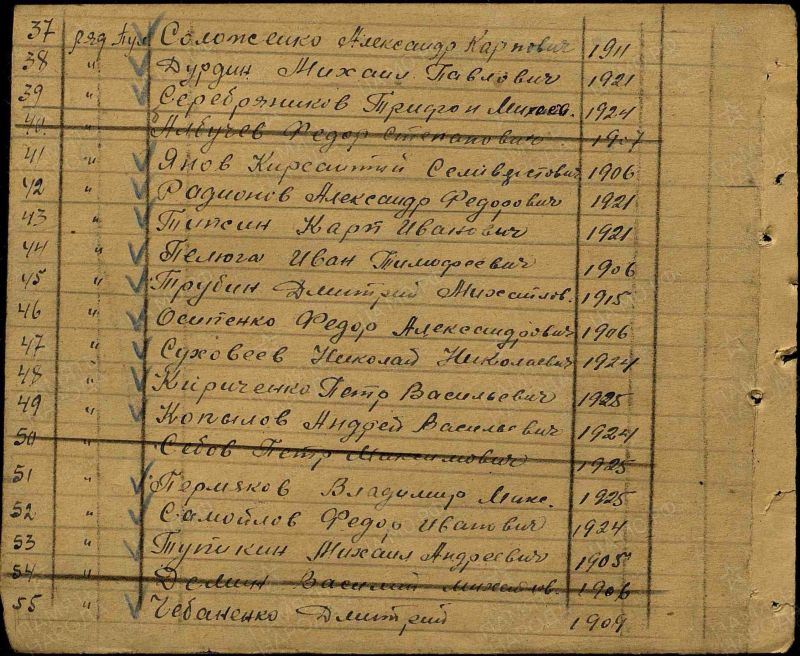 37 ряд Пул Соложенко Александр Карпович 1911
38 " Дурдин Михаил Павлович 1921
39 " Серебряников Трифон Михаев. 1924
40. Федор Степанович 1907
41 " Янов Кирсантий 1906
42 " Радионов Александр Федорович 1921
43 " Типсин Карп Иванович 1921
44 " Пелюга Иван Тимофеевич 1906
45 " Трубин Дмитрий Михайлов. 1915
46 " Осипенко Федор Александрович 1906
47 " Суховеев Николай Николаевич 1924
48 " Кириченко Петр Васильевич 1925
49 " Копылов Андрей Васильевич 1924
50 " Себов Петр Максимович 1925
51 " Пермяков Владимир Макс. 1925
52 " Самойлов Федор Иванович 1924
53 " Тупикин Михаил Андреевич 1905
54 " Демин Василий Михайлов. 1906
55 " Чебаненко Дмитрий 1909